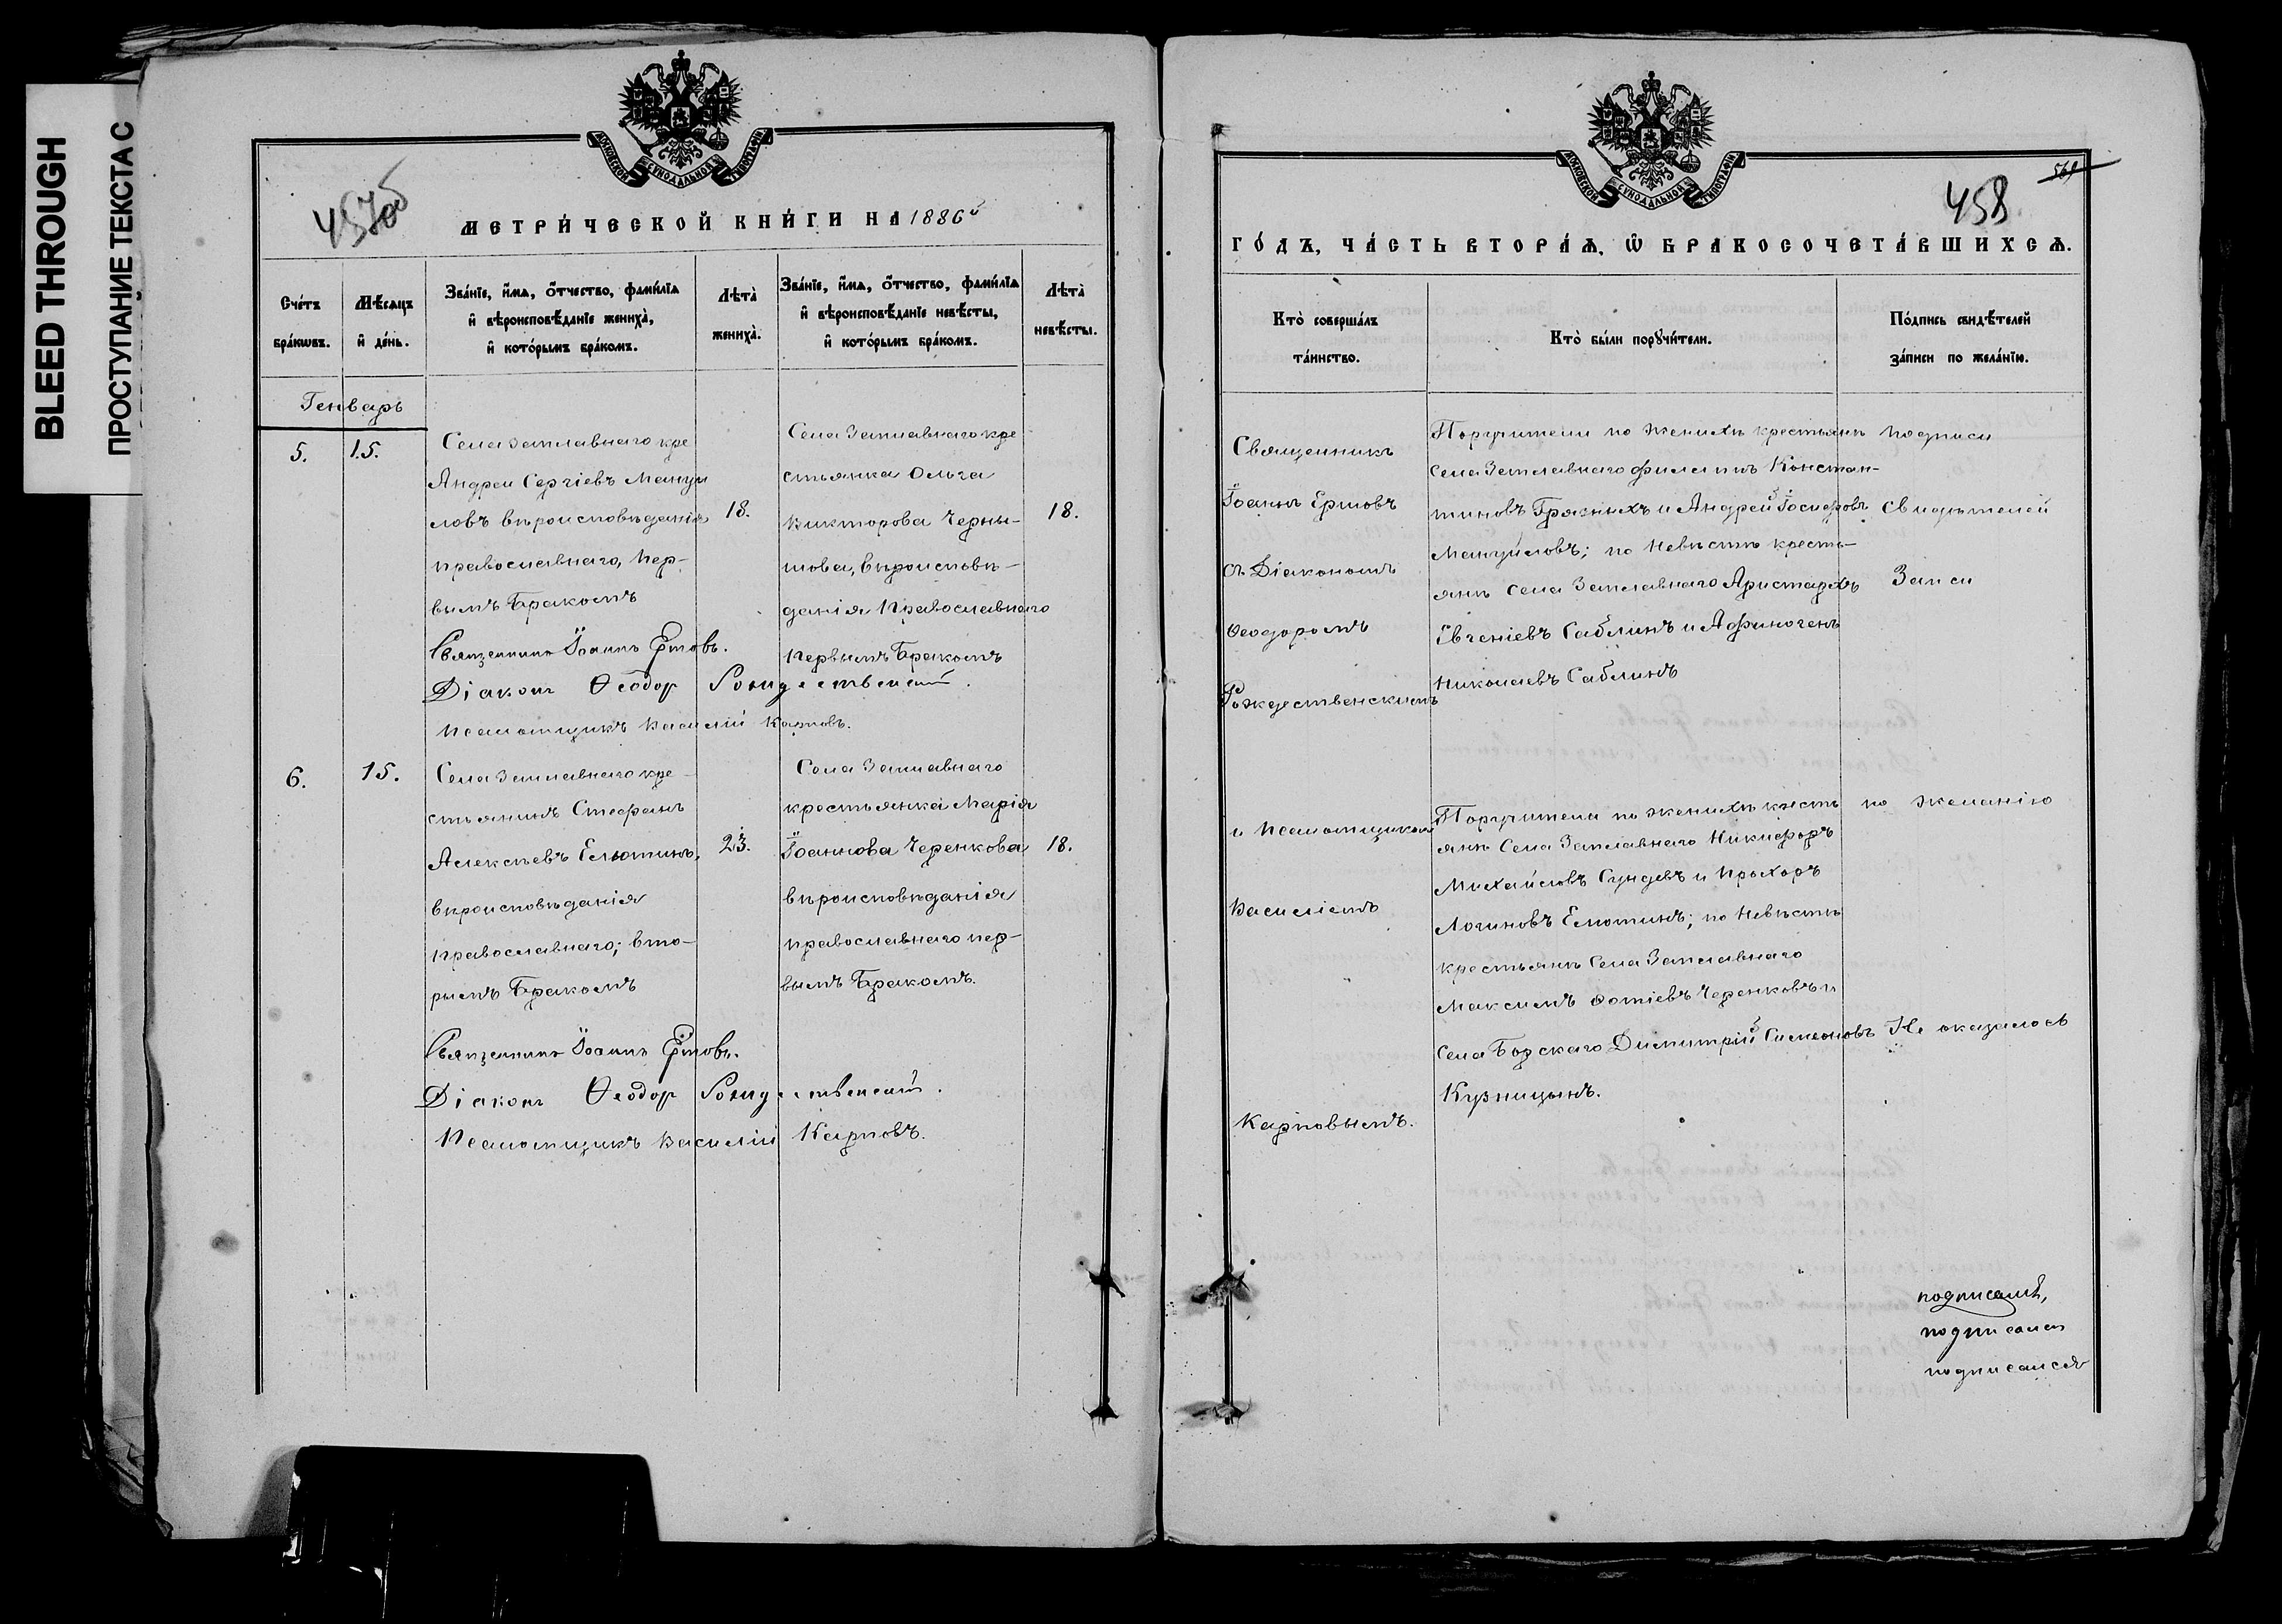 BLEED THROUGH
ПРОСТУПАНИЕ ТЕКСТА С
МОСКОВСКОЙ СУНОДАЛЬНОЙ ТИПОГРАФІИ
МЕТРИ́ЧЕСКОЙ КНИ́ГИ НА 1886й
Сче́тъ бра́кѡвъ.
Мѣ́сяцъ и҆ де́нь.
Зва́нїе, и҆́мѧ, ѻ҆́тчество, фами́лїѧ
и҆ вѣроисповѣ́данїе жениха̀,
и҆ кото́рымъ бра́комъ.
Лѣта̀ жениха̀.
Зва́нїе, и҆́мѧ, ѻ҆́тчество, фами́лїѧ
и҆ вѣроисповѣ́данїе невѣ́сты,
и҆ кото́рымъ бра́комъ.
Лѣта̀ невѣ́сты.
Генварь
5.
15.
Села Заплавнаго кре
Андрей Сергіевъ Мануи
ловъ вѣроисповѣданія
православнаго, пер-
вымъ бракомъ
18.
Села Заплавнаго кре
стьянка Ольга
Викторова Черны-
шова, вѣроисповѣ-
данія православнаго
первымъ бракомъ
18.
Священникъ Іоаннъ Ершовъ.
Діаконъ Ѳеодор Рождественскій.
Псаломщикъ Василій Карповъ.
6.
15.
Села Заплавнаго кре-
стьянинъ Стефанъ
Алексѣевъ Елютинъ,
вѣроисповѣданія
православнаго; вто-
рымъ бракомъ
23.
Села Заплавнаго
крестьянка Марія
Іоаннова Черенкова
вѣроисповѣданія
православнаго пер-
вымъ бракомъ.
18.
Священникъ Іоаннъ Ершовъ.
Діаконъ Ѳеодор Рождественскій.
Псаломщикъ Василій Карповъ.
МОСКОВСКОЙ СУНОДАЛЬНОЙ ТИПОГРАФІИ
458
ГО́ДЪ, ЧА́СТЬ ВТОРА́Ѧ, Ѡ҆ БРАКОСОЧЕТА́ВШИХСѦ.
Кто̀ соверша́лъ та́инство.
Кто̀ бы́ли порꙋчи́тели.
По́дпись свидѣ́телей за́писи по жела́нїю.
Священникъ
Іоаннъ Ершовъ
съ Діакономъ
Ѳеодоромъ
Рождественскимъ
и Псаломщикомъ
Василіемъ
Карповымъ.
Поручители по женихѣ крестьянѣ
села Заплавнаго Филиппъ Констан-
тиновъ Грязныхъ и Андрей Іосифовъ
Мануйловъ; по невѣстѣ кресть-
янѣ села Заплавнаго Аристархъ
Евгеніевъ Саблинъ и Афиногенъ
Николаевъ Саблинъ
Поручители по женихѣ кресть
янѣ Села Заплавнаго Никифоръ
Михайловъ Сундевъ и Прохоръ
Логиновъ Елютинъ; по невѣстѣ
крестьянѣ Села Заплавнаго
Максимъ Фотіевъ Черенковъ и
села Борскаго Димитрій Симеоновъ
Кузницынъ.
подписи
свидѣтелей
Записи
по желанію
Не оказалось
подписалъ,
подписали
подписался